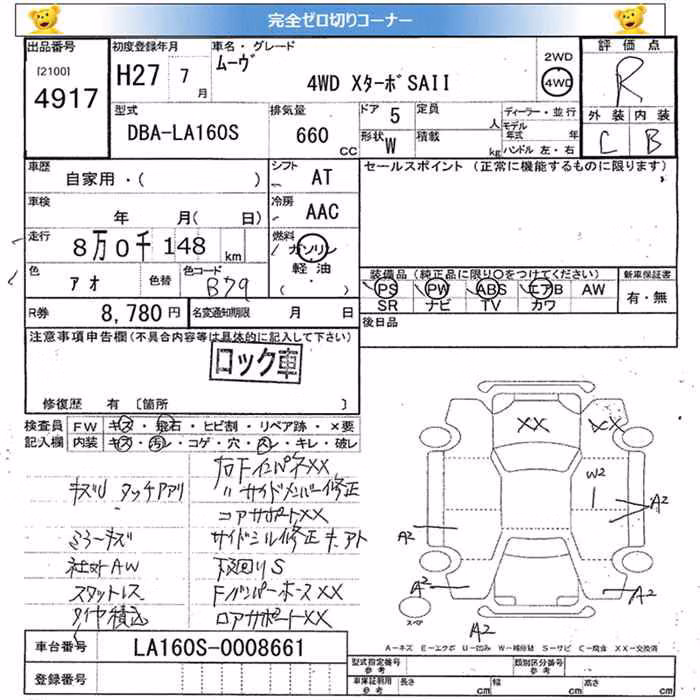 完全ゼロ切りコーナー
出品番号
[2100]
4917
初度登録年月
H27 7
月
車名・グレード
ムーヴ
4WD XターボSAII
2WD
4WD
評価点
R
外装 内装
C B
型式
DBA-LA160S
排気量
660
CC
ドア 5
形状 W
定員
人
積載
kg
ディーラー・並行
モデル
年式 年
ハンドル 左・右
車歴
自家用・( )
シフト
AT
セールスポイント (正常に機能するものに限ります)
車検
年 月( 日)
冷房
AAC
走行
8万0千148 km
燃料
ガソリン
軽油
( ・ )
色
アオ
色替
色コード
B79
装備品(純正品に限り○をつけてください)
PS PW ABS エアB AW
SR ナビ TV カワ
新車保証書
有・無
R券
8,780円
名変通知期限 月 日
後日品
注意事項申告欄(不具合内容等は具体的に記入して下さい)
ロック車
修復歴 有 〔箇所 〕
検査員
記入欄
FW キズ・飛石・ヒビ割・リペア跡・×要
内装 キズ・汚レ・コゲ・穴・スレ・キレ・破レ
キズU タッチアリ
ミラーキズ
社外AW
スタットレス
タイヤ積込
右Fインパネ××
〃サイドメンバー修正
コアサポート××
サイドシル修正
下回りS
Fバンパーホース××
ロアサポート××
××
××
W2
A2
A2
A2
A2
A2
スペア
A-キズ E-エクボ U-凹み W-補修跡 S-サビ C-腐食 XX-交換済
車台番号
LA160S-0008661
登録番号
型式指定番号
参考
類別区分番号
参考
車庫証明用
参考
長さ cm
幅 cm
高さ cm